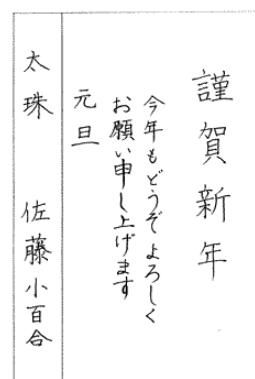 謹賀新年
今年もどうぞよろしく
お願い申し上げます
元旦
佐藤小百合
太珠